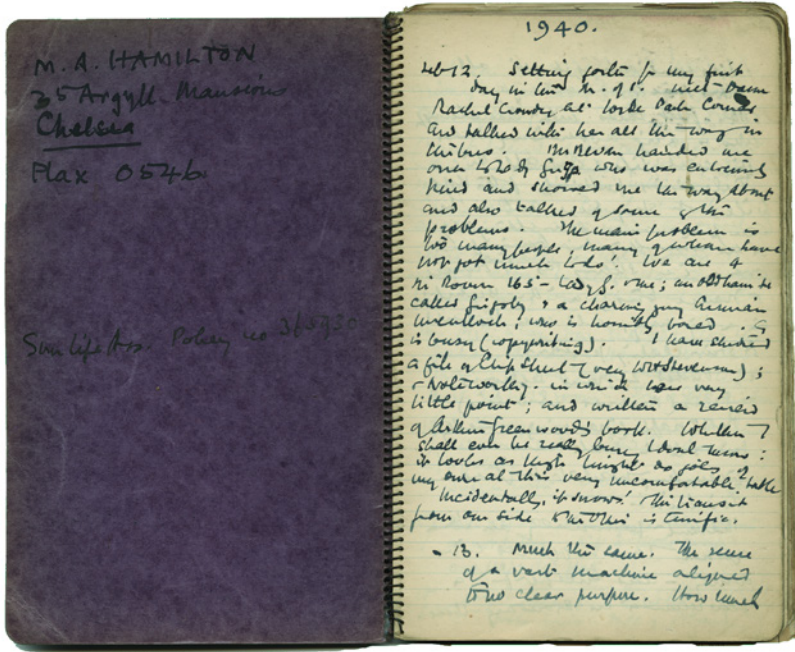 M. A. HAMILTON
35 Argyll Mansions
Chelsea
Flax 0546
Sun Life Ass. Policy no
1940.
Feb 12. Setting forth for my first
day in the M. of I. met Dame
Rachel Crowdy at Hyde Park Corner
and talked with her all the way in
the bus. Bevan handed me
over to Lady Grigg who was extremely
kind and showed me the way about
and also talked of some of the
problems. The main problem is
too many people, many of whom have
not got much to do! We are 4
in Room 165 - Lady G. me; an
called Grigsby & a charming young
Wenlock; who is horribly bored. G
is busy (copywriting). I have studied
a file of Clip Sheet (very Stevenson);
& Noteworthy. in which see very
little point; and written a review
of Arthur Greenwood's book. Whether I
shall ever be really busy I dont know:
it looks as tho I might do jobs of
my own at this very uncomfortable table
Incidentally, it snows! The transit
from one side to the other is terrific.
- 13. Much the same. The sense
of a vast machine aligned
to no clear purpose. How much